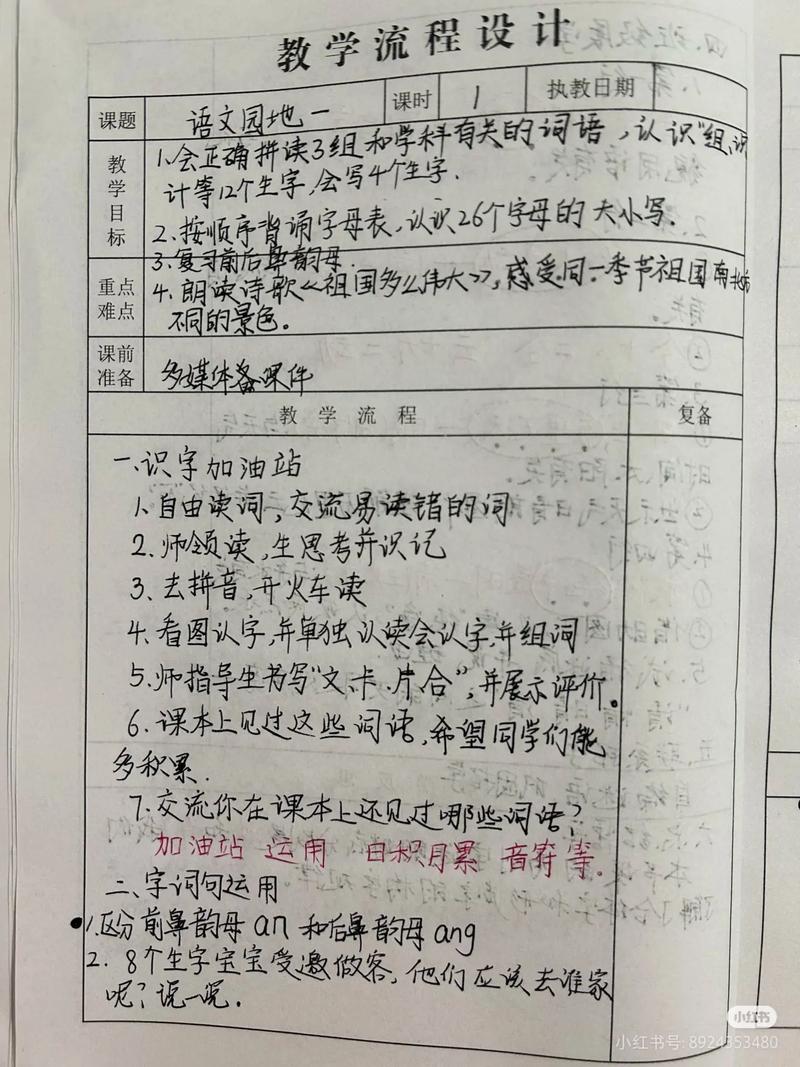 教学流程设计
课题 语文园地一 课时 1 执教日期
教学目标
1.会正确拼读3组和学科有关的词语，认识"组、识
计等12个生字，会写4个生字.
2.按顺序背诵字母表，认识26个字母的大小写.
3.复习前后鼻韵母.
重点难点
4.朗读诗歌《祖国多么伟大》，感受同一季节祖国南北方
不同的景色。
课前准备 多媒体备课件
教学流程 复备
一.识字加油站
1.自由读词，交流易读错的词
2.师领读，生思考并识记
3、去拼音，开火车读
4.看图认字，并单独认读会认字，并组词
5.师指导生书写"文、卡、片、合"，并展示评价。
6.课本上见过这些词语，希望同学们能
多积累.
7.交流你在课本上还见过哪些词语？
加油站 运用 日积月累 音符等.
二、字词句运用
1.区分前鼻韵母an和后鼻韵母ang
2.8个生字宝宝受邀做客，他们应该去谁家
呢？说一说.
小红书
小红书号: 8924353480